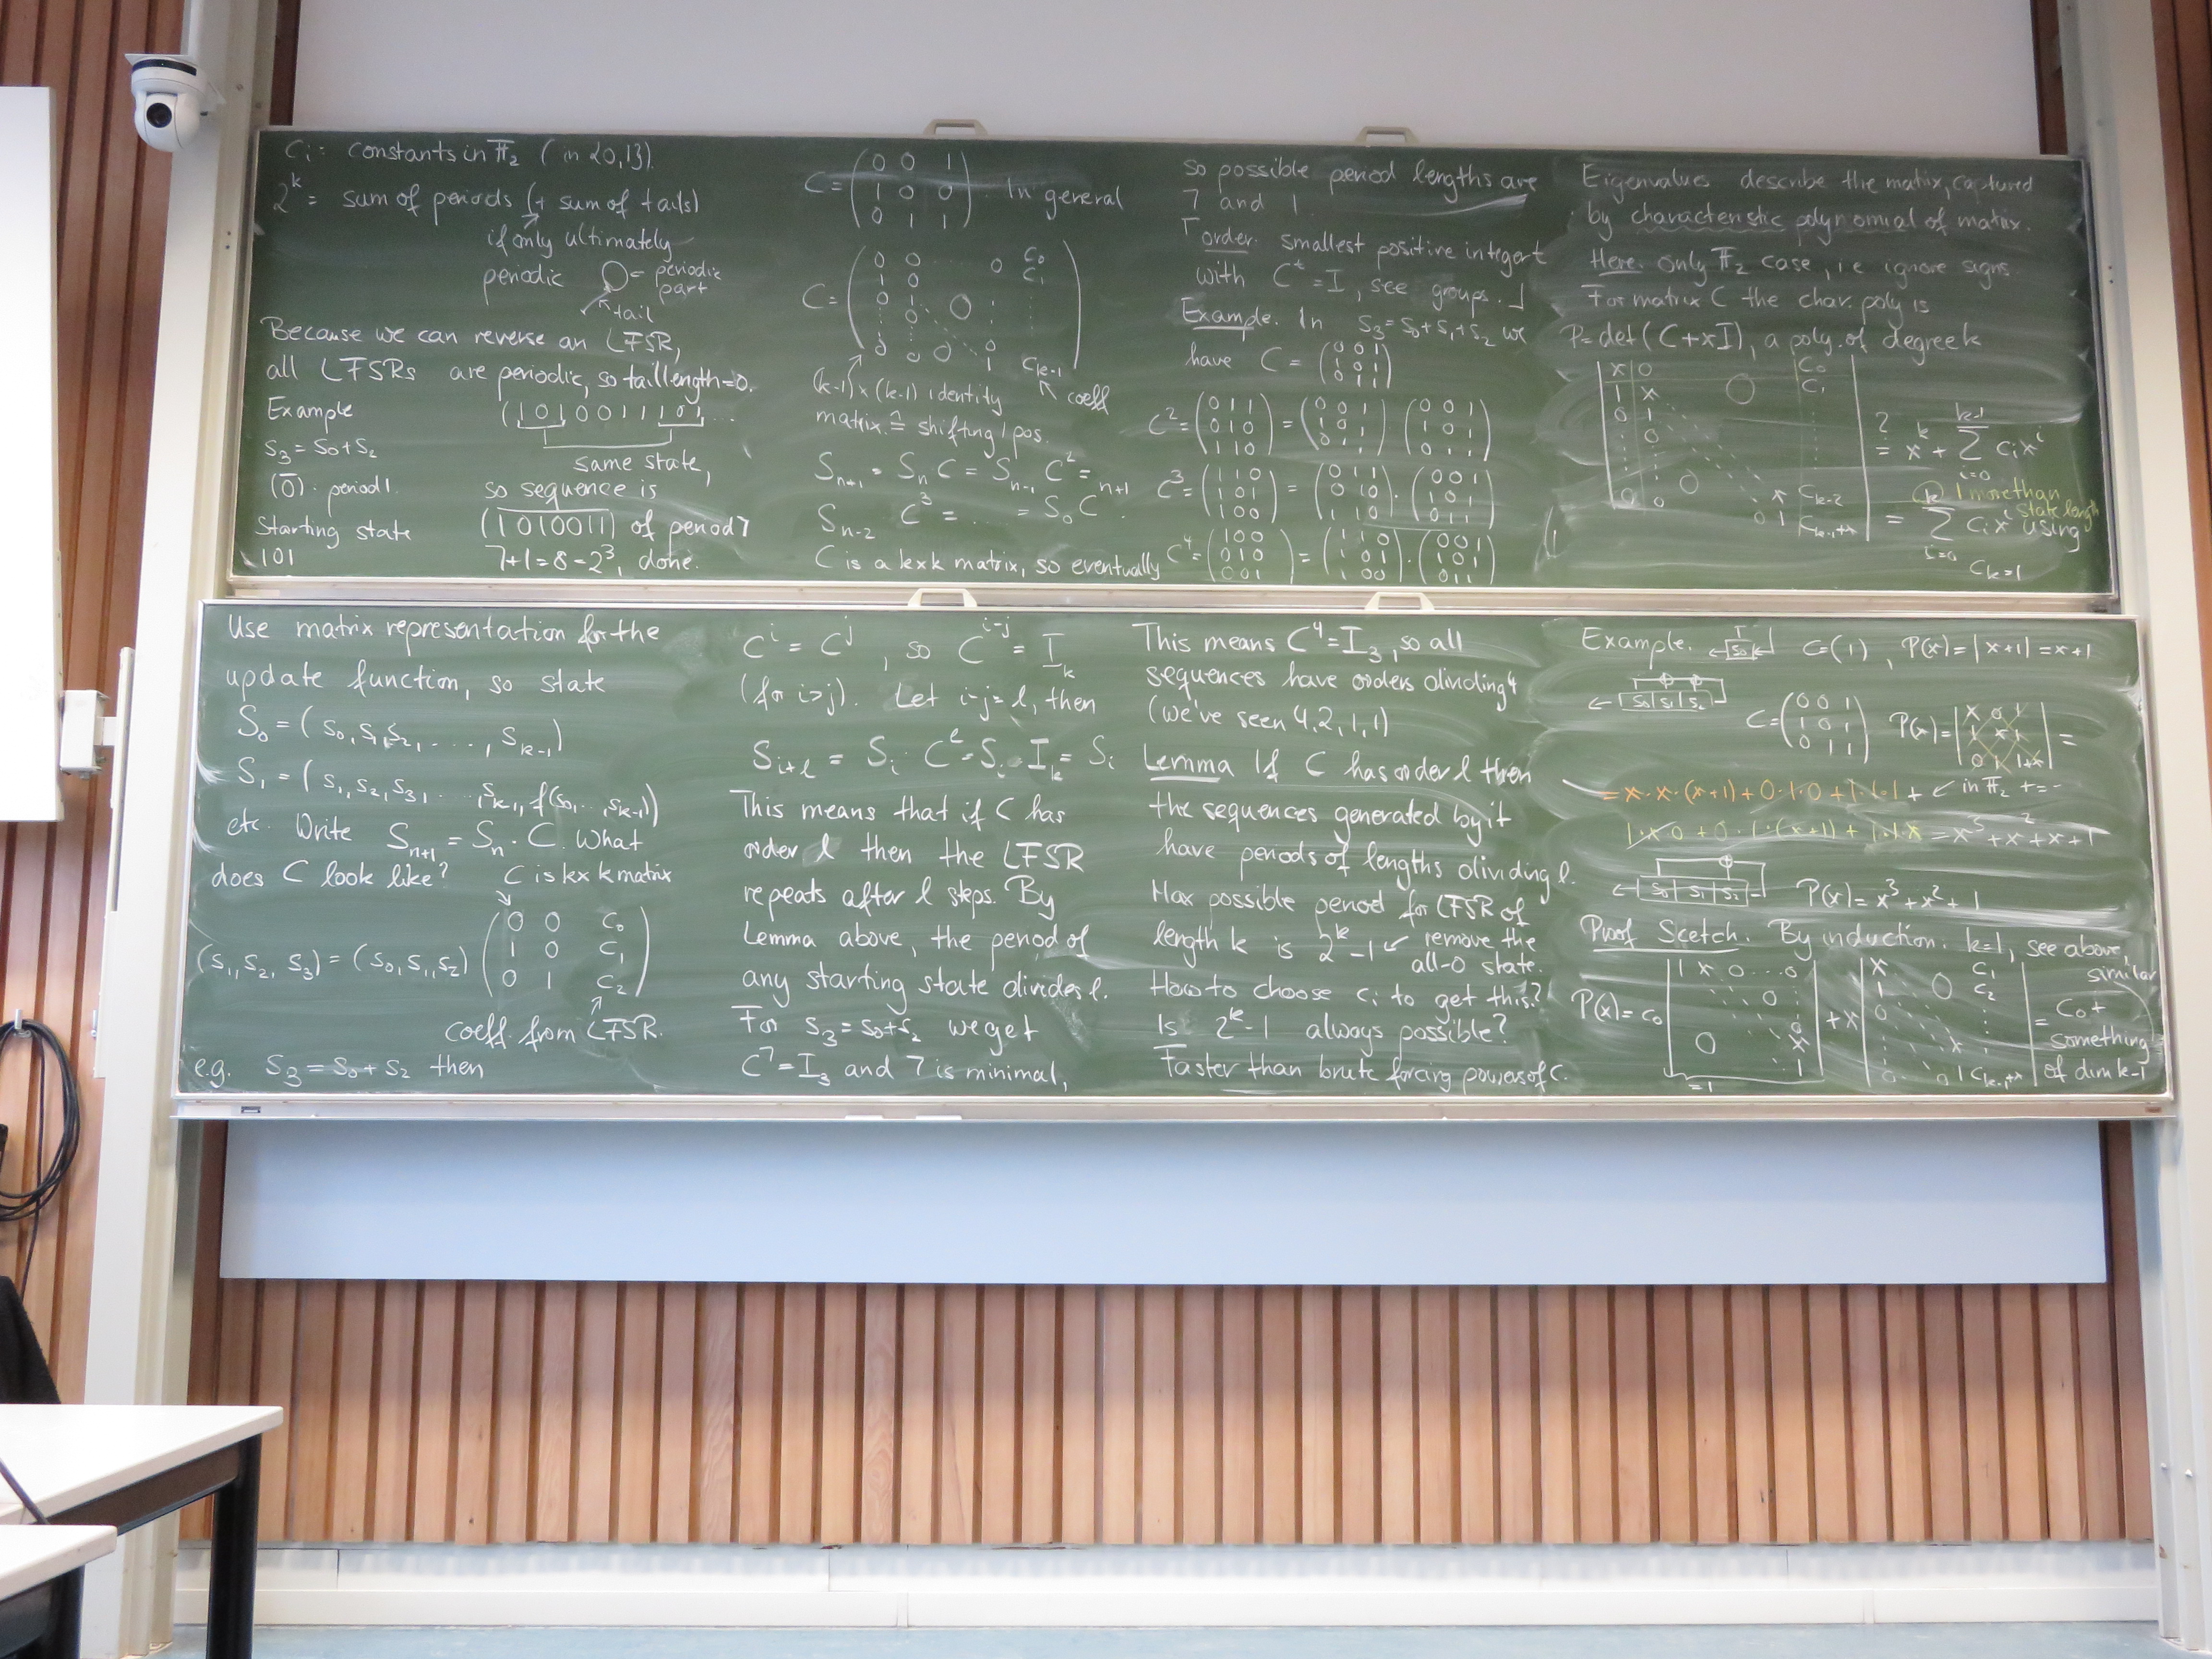 Ci = constants in F₂ (in {0,1}).
2^k = sum of periods (+ sum of tails)
if only ultimately
periodic = periodic part
tail
Because we can reverse an LFSR,
all LFSRs are periodic, so tail length=0.
Example (1010011101...
S₃ = S₀+S₂ same state,
(0̅) · period 1. so sequence is
Starting state (1010011) of period 7
101 7+1=8=2³, done.
C = (0 0 1
1 0 0
0 1 1). In general
C = (0 0 ... 0 C₀
1 0 C₁
0 1 0
0
0 0 0 1 C_{k-1})
(k-1)×(k-1) identity coeff
matrix ≙ shifting 1 pos.
S_{n+1} = S_n C = S_{n-1} C² =
S_{n-2} C³ = ... = S₀ C^{n+1}
C is a k×k matrix, so eventually
so possible period lengths are
7 and 1.
⌈order: smallest positive integer t
with C^t = I, see groups.⌋
Example. In S₃=S₀+S₁+S₂ we
have C = (0 0 1
1 0 1
0 1 1)
C² = (0 1 1
0 1 0
1 1 0) = (0 0 1
1 0 1
0 1 1) (0 0 1
1 0 1
0 1 1)
C³ = (1 1 0
1 0 1
1 0 0) = (0 1 1
0 1 0
1 1 0) · (0 0 1
1 0 1
0 1 1)
C⁴ = (1 0 0
0 1 0
0 0 1) = (1 1 0
1 0 1
1 0 0) · (0 0 1
1 0 1
0 1 1)
Eigenvalues describe the matrix, captured
by characteristic polynomial of matrix.
Here: only F₂ case, i.e. ignore signs.
For matrix C the char. poly is
P=det(C+xI), a poly. of degree k
|x 0 C₀
1 x 0 C₁
0 1
0
x C_{k-2}
0 0 0 1 C_{k-1}+x|
?= x^k + Σ_{i=0}^{k-1} C_i x^i
= Σ_{i=0}^{k} C_i x^i using
1 more than state length
C_k=1
Use matrix representation for the
update function, so state
S₀ = (s₀, s₁, s₂, ..., s_{k-1})
S₁ = (s₁, s₂, s₃, ..., s_{k-1}, f(s₀, ..., s_{k-1}))
etc. Write S_{n+1} = S_n · C. What
does C look like? C is k×k matrix
(s₁, s₂, s₃) = (s₀, s₁, s₂) (0 0 C₀
1 0 C₁
0 1 C₂)
coeff. from LFSR.
e.g. s₃ = s₀ + s₂ then
C^i = C^j, so C^{i-j} = I_k
(for i>j). Let i-j=l, then
S_{i+l} = S_i · C^l = S_i · I_k = S_i
This means that if C has
order l then the LFSR
repeats after l steps. By
Lemma above, the period of
any starting state divides l.
For s₃ = s₀+s₂ we get
C⁷=I₃ and 7 is minimal,
This means C⁴=I₃, so all
sequences have orders dividing 4
(we've seen 4,2,1,1)
Lemma If C has order l then
the sequences generated by it
have periods of lengths dividing l.
Max possible period for LFSR of
length k is 2^k-1 ← remove the
all-0 state.
How to choose c_i to get this?
Is 2^k-1 always possible?
Faster than brute forcing powers of C.
Example. S₀ C=(1), P(x)=|x+1|=x+1
S₀|S₁|S₂ C=(0 0 1
1 0 1
0 1 1) P(x)=|x 0 1
1 x 1
0 1 1+x| =
= x·x·(x+1) + 0·1·0 + 1·1·1 + ↙ in F₂ + = -
1·x·0 + 0·1·(x+1) + 1·1·x = x³+x²+x+1
S₀|S₁|S₂ P(x) = x³+x²+1
Proof Scetch. By induction. k=1, see above,
P(x) = C₀ |1 x 0...0
0
0
0 x
1| =1
+ x |x C₁
1 0 C₂
0
x
0 0 1 C_{k-1}+x|
similar
= C₀+
something
of dim k-1